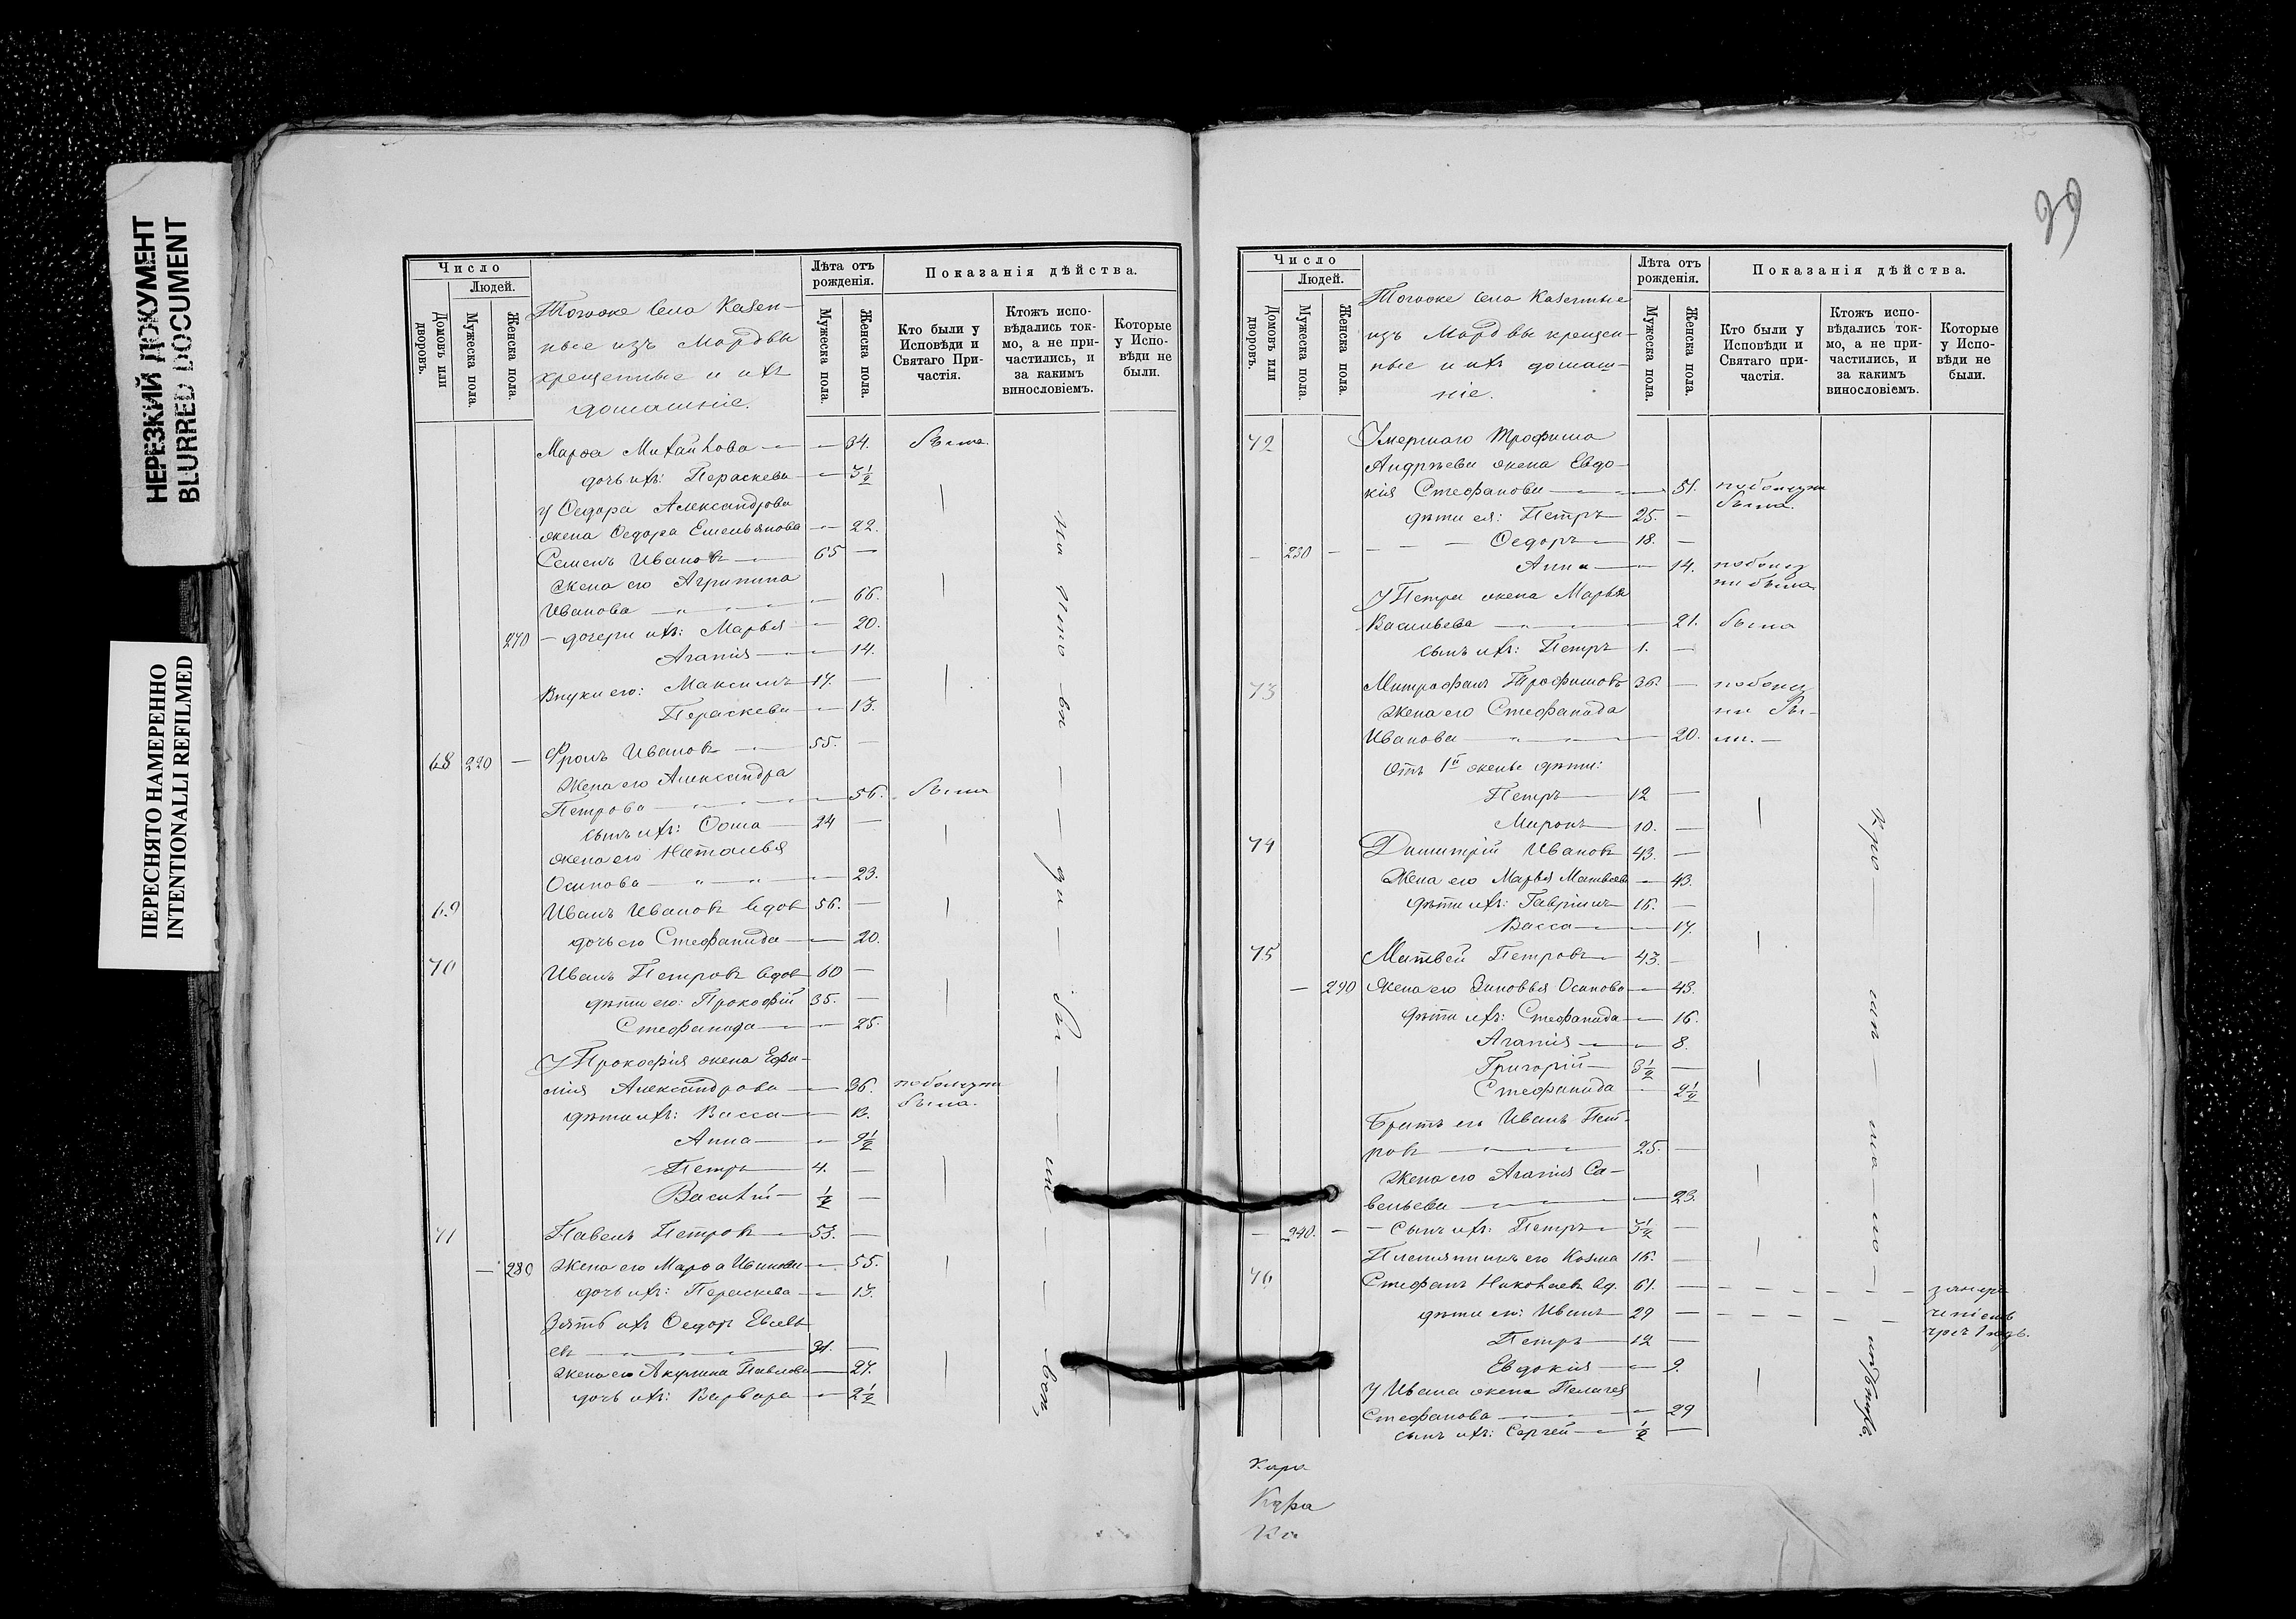 НЕРЕЗКИЙ ДОКУМЕНТ
BLURRED DOCUMENT
ПЕРЕСНЯТО НАМЕРЕННО
INTENTIONALLI REFILMED
Число
Людей.
Домовъ или дворовъ.
Мужеска пола.
Женска пола.
Тогоже села Казен-
ные изъ Мордвы
крещенные и ихъ
домашніе.
Лѣта отъ рожденія.
Мужеска пола.
Женска пола.
Показанія дѣйства.
Кто были у Исповѣди и Святаго При-частія.
Ктожъ испо-вѣдались ток-мо, а не при-частились, и за какимъ винословіемъ.
Которые у Испо-вѣди не были.
Марѳа Михайлова 34. была
дочь ихъ: Параскева 3½
У Ѳедора Александрова
жена Ѳедора Емельянова 22.
Семенъ Ивановъ 65 —
Жена его Агрипина
Иванова 66.
270 — дочери ихъ: Марья 20.
Агапія 14.
Внуки его: Максимъ 17. —
Параскева 13.
68 220 — Фролъ Ивановъ 55. —
Жена его Александра
Петрова 56. была
сынъ ихъ: Ѳома 24 —
жена его Наталья
Осипова 23.
69 Иванъ Ивановъ вдов 56. —
дочь его Стефанида 20.
70 Иванъ Петровъ вдов 60 —
дѣти его: Прокофій 35. —
Стефанида 25.
У Прокофія жена Ефи-
мія Александрова 36.
была.
дѣти ихъ: Васса 13.
Анна 9½
Петръ 4. —
Василій ½ —
71 Павелъ Петровъ 53. —
— 280 Жена его Марѳа Иванова 55.
дочь ихъ: Параскева 13.
Зять ихъ Ѳедоръ Евсѣ
евъ 31. —
жена его Акулина Павлова 27.
дочь ихъ: Варвара 2½
39
Число
Людей.
Домовъ или дворовъ.
Мужеска пола.
Женска пола.
Тогоже села Казенные
изъ Мордвы крещен-
ные и ихъ домаш-
ніе.
Лѣта отъ рожденія.
Мужеска пола.
Женска пола.
Показанія дѣйства.
Кто были у Исповѣди и Святаго при-частія.
Ктожъ испо-вѣдались ток-мо, а не при-частились, и за какимъ винословіемъ.
Которые у Испо-вѣди не были.
72 Умершаго Трофима
Андрѣева жена Евдо-
кія Стефанова 51.
была.
дѣти ея: Петръ 25. —
— 230 — Ѳедоръ 18. —
Анна 14.
У Петра жена Марья
Васильева 21. была
сынъ ихъ: Петръ 1. —
73 Митрофанъ Трофимовъ 36. —
Жена его Стефанида
Иванова 20.
Отъ 1й жены дѣти:
Петръ 12 —
Миронъ 10. —
74 Димитрій Ивановъ 43. —
Жена его Марья Матвѣева 43.
дѣти ихъ: Гавріилъ 16. —
Васса 17.
75 Матвей Петровъ 43. —
— 290 Жена его Зиновья Осипова 43.
дѣти ихъ: Стефанида 16.
Агапія 8.
Григорій 3½ —
Стефанида 2½
Братъ его Иванъ Пет-
ровъ 25. —
Жена его Агапія Са-
вельева 23.
— 240. — Сынъ ихъ: Петръ 3½ —
Племянникъ его Козма 16. —
76 Стефанъ Николаевъ вд. 61. —
дѣти его: Иванъ 29 —
Петръ 12 —
Евдокія 9.
У Ивана жена Пелагея
Стефанова 29
сынъ ихъ: Сергей ½ —